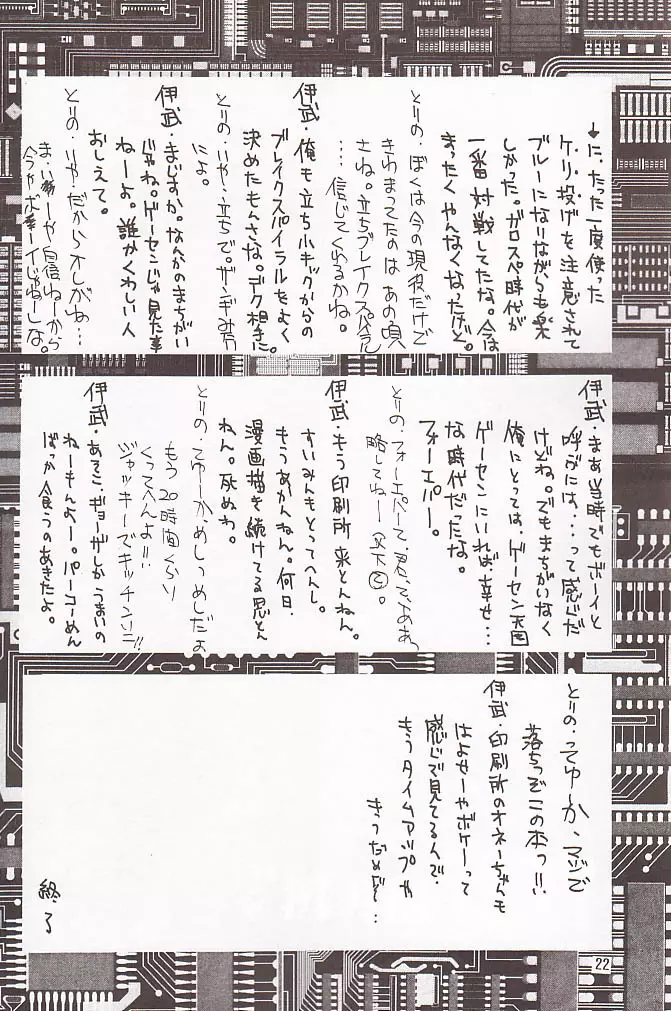 ↓に、たった一度使った
ケリ投げを注意されて
ブルーになりながらも楽
しかった。ガロスペ時代が
一番対戦してたな。今は
まったくやんなくなったけど。
とりの・ぼくは今の現役だけで
きわまってたのはあの頃
さね。立ちブレイクスパイラル
…信じてくれるかね。
伊武・俺も立ち小キックからの
ブレイクスパイラルをよく
決めたもんさな。デク相手に。
とりの・いや、立ちで。ザンギみた
によ。
伊武・まじすか。なんかのまちがい
じゃね。ゲーセンじゃ見た事
ねーよ。誰かくわしい人
おしえて。
とりの・いや・だからオレがね…
まぁいーや自信ねーから
伊武・まあ当時でもボーイと
呼ぶには…って感じだ
けどね。でもまちがいなく
俺にとっては、ゲーセン天国
ゲーセンにいれば、幸せ…
な時代だったな。
フォーエバー。
とりの・フォーエバーて、君って、ああ
略してねー(以下略)。
伊武・もう印刷所来とんねん。
すいみんもとってへんし。
もうあかんねん。何日、
漫画描き続けてる思とん
ねん。死ぬわ。
とりの・てゆーか、めしつめしだよ
もう20時間くらい
くってへんよ!!
ジャッキーでキッチンいこ!!
伊武・あそこ、ギョーザしかうまいの
ねーもんよー。パーコーめん
ばっか食うのあきたよ。
とりの・ってゆーか、マジで
落ちっぞこの本っ!!
伊武・印刷所のオネーちゃんも
はよせーやボケーって
感じで見てるんで、
もうタイムアップや
きっとだめだ…
終了
22